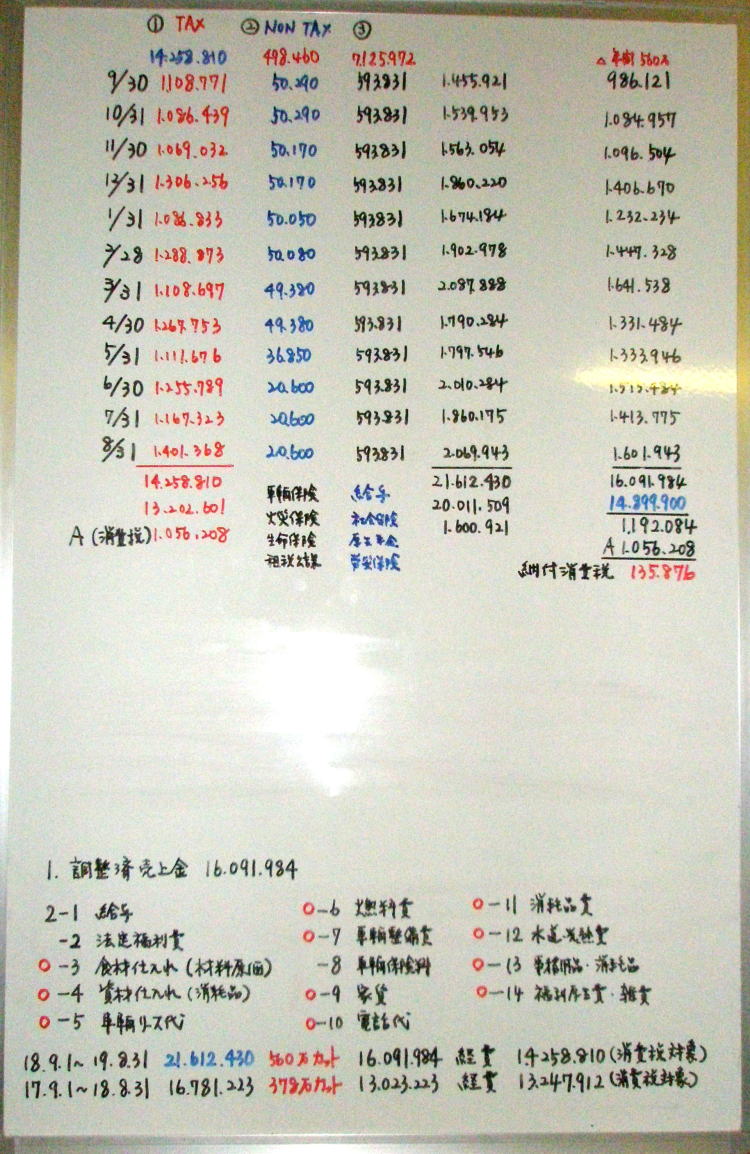 ① TAX ② NON TAX ③
14.258.810 498.460 7.125.972 △年間560万
9/30 1.108.771 50.290 593.831 1.455.921 986.121
10/31 1.086.439 50.290 593.831 1.539.953 1.084.957
11/30 1.069.032 50.170 593.831 1.563.054 1.096.504
12/31 1.306.256 50.170 593.831 1.860.220 1.406.670
1/31 1.086.833 50.050 593.831 1.674.184 1.232.234
2/28 1.288.873 50.080 593.831 1.902.978 1.447.328
3/31 1.108.697 49.380 593.831 2.087.888 1.641.538
4/30 1.267.753 49.380 593.831 1.790.284 1.331.484
5/31 1.111.676 36.850 593.831 1.797.546 1.333.946
6/30 1.255.789 20.600 593.831 2.010.284
7/31 1.167.323 20.600 593.831 1.860.175 1.413.775
8/31 1.401.368 20.600 593.831 2.069.943 1.601.943
14.258.810 車輌保険 給与 21.612.430 16.091.984
13.202.601 火災保険 社会保険 20.011.509 14.899.900
A (消費税) 1.056.208 生命保険 厚生年金 1.600.921 1,192.084
租税公課 労災保険 A 1.056.208
納付消費税 135.876
1. 調整済売上金 16.091.984
2-1 給与 ○-6 燃料費 ○-11 消耗品費
-2 法定福利費 ○-7 車輌整備費 ○-12 水道光熱費
○-3 食材仕入れ (材料原価) -8 車輌保険料 ○-13 事務用品・消耗品
○-4 資材仕入れ (消耗品) ○-9 家賃 ○-14 福利厚生費・雑費
○-5 車輌リース代 ○-10 電話代
18.9.1～19.8.31 21.612.430 560万カット 16.091.984 経費 14.258.810 (消費税対象)
17.9.1～18.8.31 16.781.223 378万カット 13.023.223 経費 13.247.912 (消費税対象)